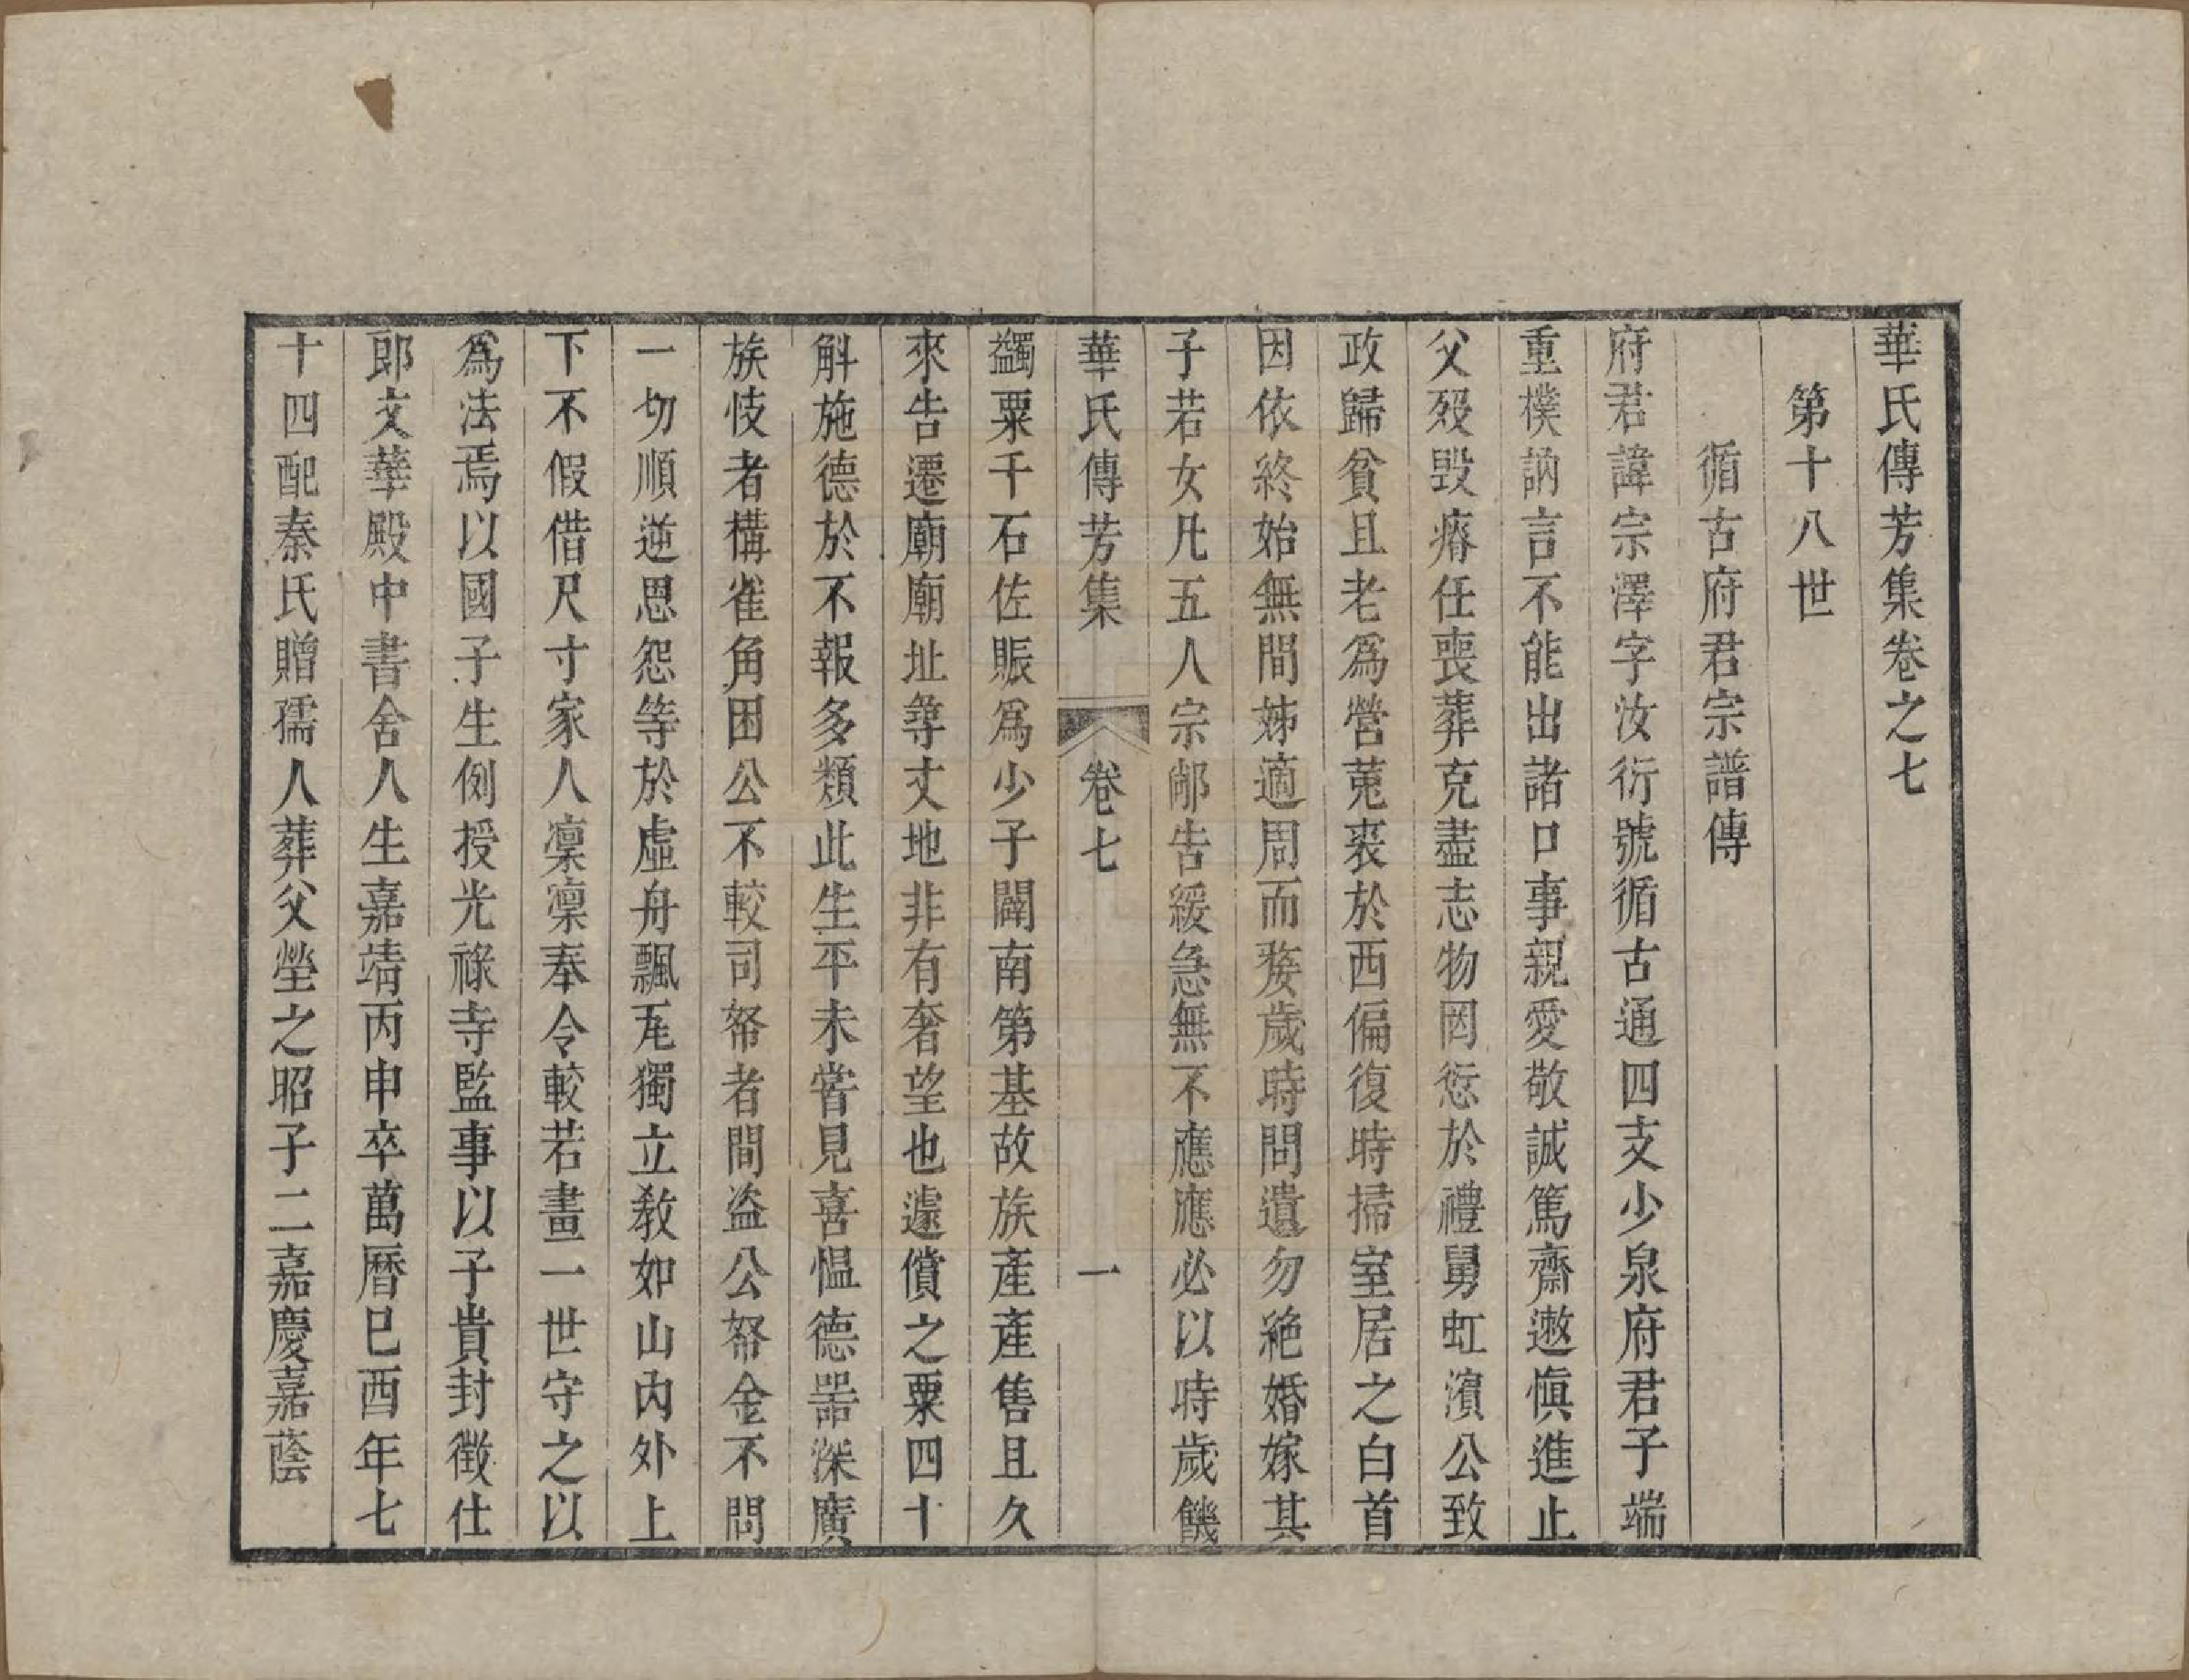 華氏傳芳集卷之七
第十八世
循古府君宗譜傳
府君諱宗澤字汝衍號循古通四支少泉府君子端
重樸訥言不能出諸口事親愛敬誠篤齋遬愼進止
父歿毀瘠任喪葬克盡志物罔愆於禮舅虹濱公致
政歸貧且老爲營菟裘於西偏復時掃室居之白首
因依終始無間姊適周而嫠歲時問遺勿絶婚嫁其
子若女凡五人宗鄰告緩急無不應應必以時歲饑
華氏傳芳集 卷七 一
蠲粟千石佐賑爲少子闢南第基故族產產售且久
來告遷廟廟址尋丈地非有奢望也遽償之粟四十
斛施德於不報多類此生平未嘗見喜慍德器深廣
族忮者構雀角困公不較司帑者間盜公帑金不問
一切順逆恩怨等於虛舟飄瓦獨立敎如山內外上
下不假借尺寸家人凜凜奉令較若畫一世守之以
爲法焉以國子生例授光祿寺監事以子貴封徵仕
郎文華殿中書舍人生嘉靖丙申卒萬曆己酉年七
十四配秦氏贈孺人葬父塋之昭子二嘉慶嘉蔭